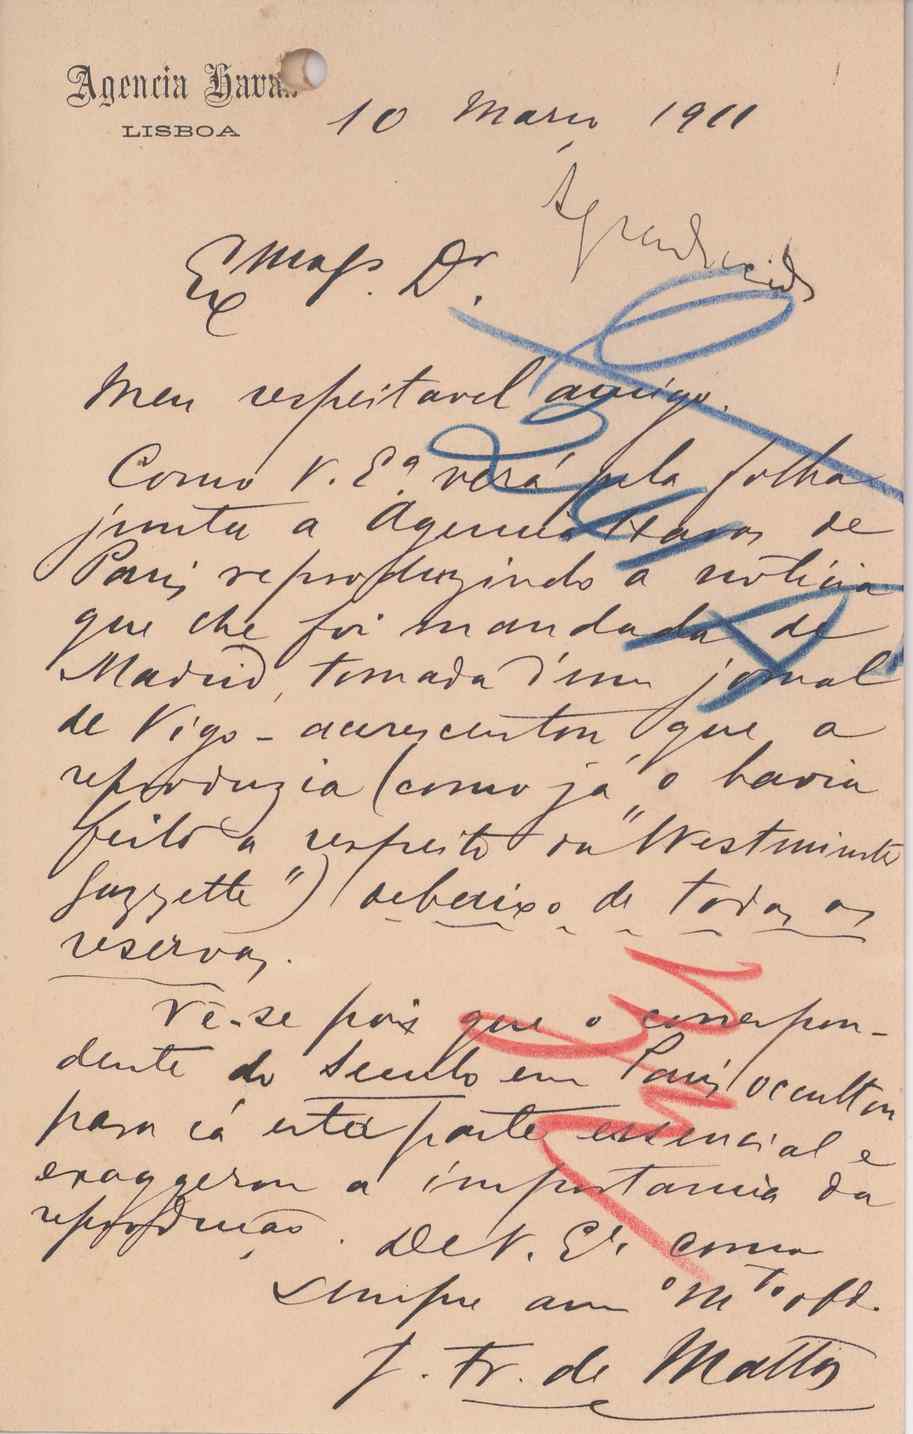 Agencia Havas
LISBOA
10 Março 1911
Agradecido
Exmo Sr. Dr.
Meu respeitavel amigo.
Como V. Exª verá pela folha
junta a Agencia Havas de
Paris reproduzindo a noticia
que lhe foi mandada de
Madrid, tomada d'um jornal
de Vigo - acrescentou que a
reproduzia (como já o havia
feito a respeito da "Westminster
Gazzette") debaixo de todas as
reservas.
Vê-se pois que o correspon-
dente do Seculo em Paris occultou
para cá esta parte essencial e
exaggerou a importancia da
reprodução. De V. Exª como
sempre amº mto obd.
J. Fr. de Mattos